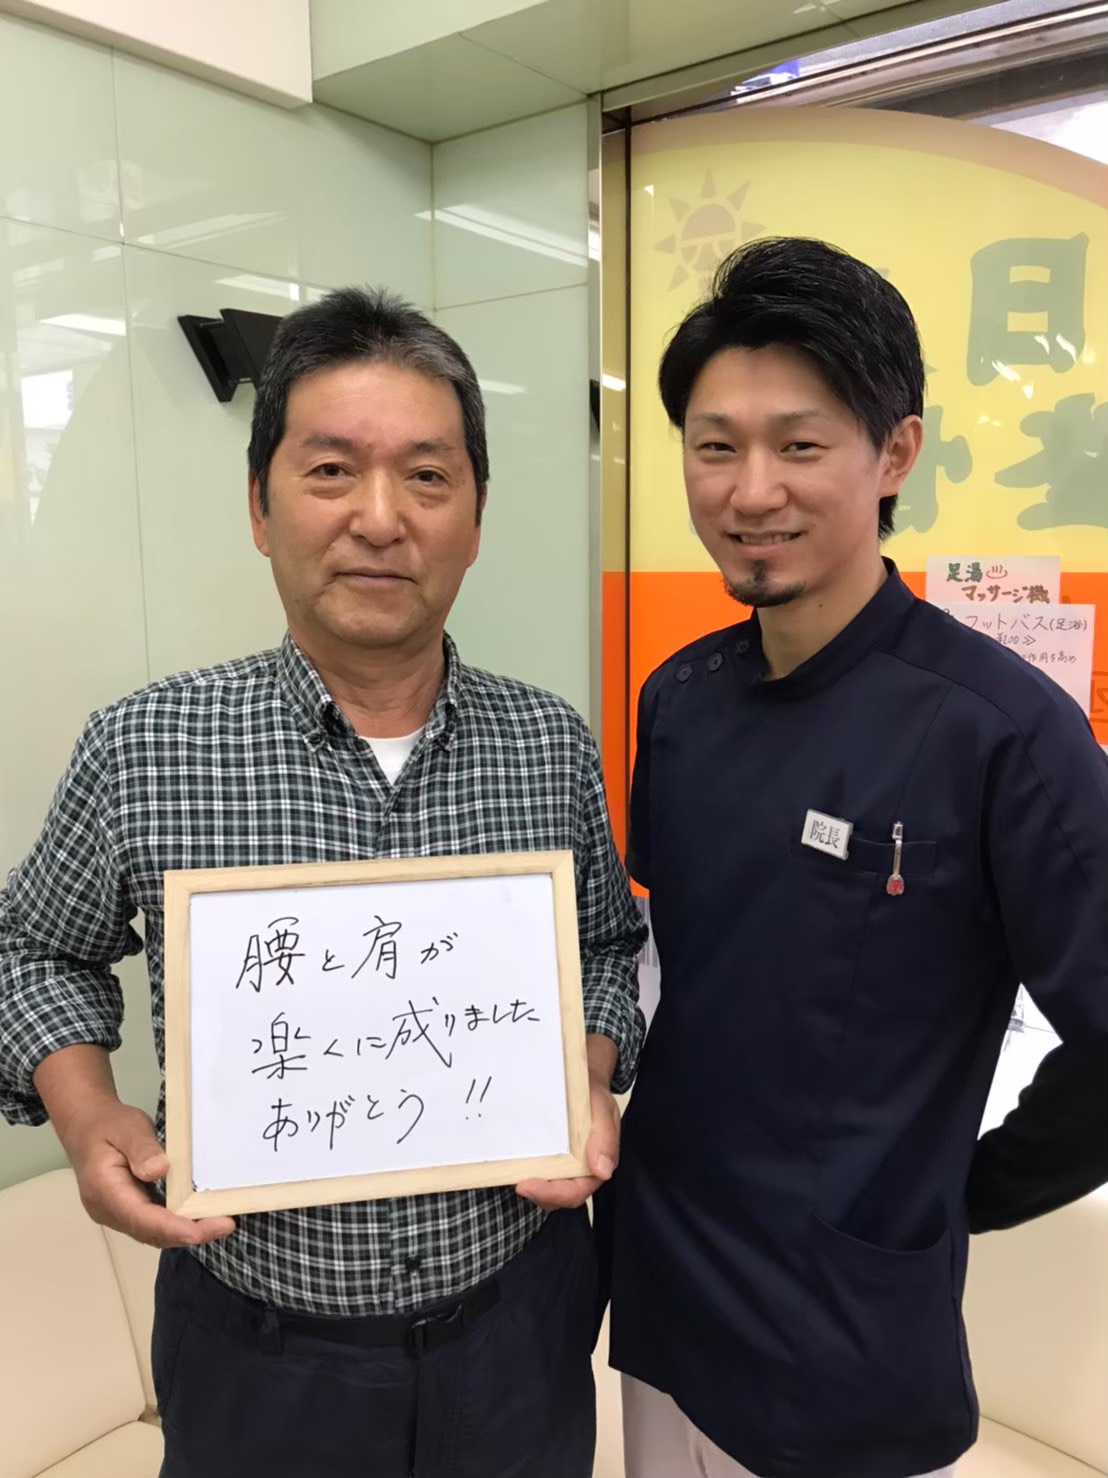 腰と肩が
楽くに成りました
ありがとう!!
院長
足湯♨
マッサージ機
フットバス(足浴)
¥100≫
作用を高め
日